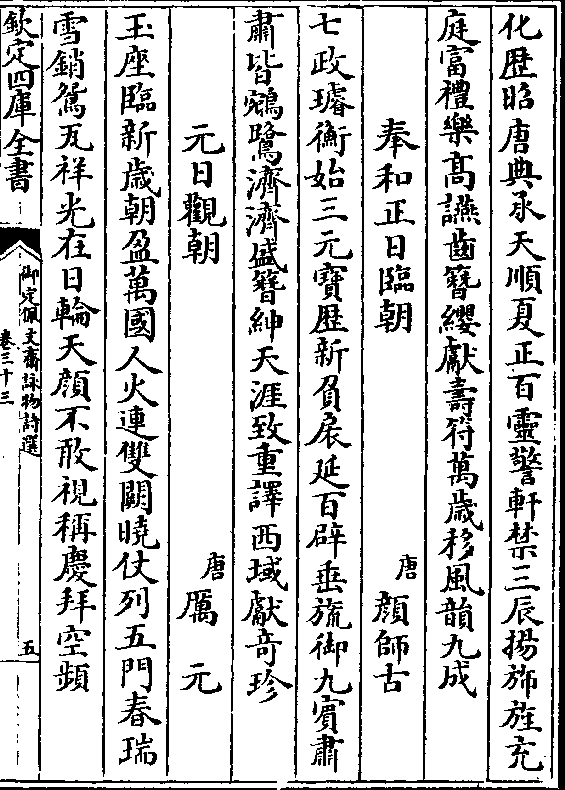 化歴昭唐典承天順夏正百靈警軒禁三辰揚旆旌充
庭富禮樂髙讌齒簪纓獻壽符萬歲移風韻九成
奉和正日臨朝
唐 顔師古
七政璿衡始三元寶歴新負扆延百辟垂旒御九賓肅
肅皆鵷鷺濟濟盛簪紳天涯致重譯西域獻竒珍
元日觀朝
唐 厲元
玉座臨新歲朝盈萬國人火連雙闕曉仗列五門春瑞
雪銷鴛瓦祥光在日輪天顔不敢視稱慶拜空頻
欽定四庫全書
御定佩文齋詠物詩選
卷三十三
五